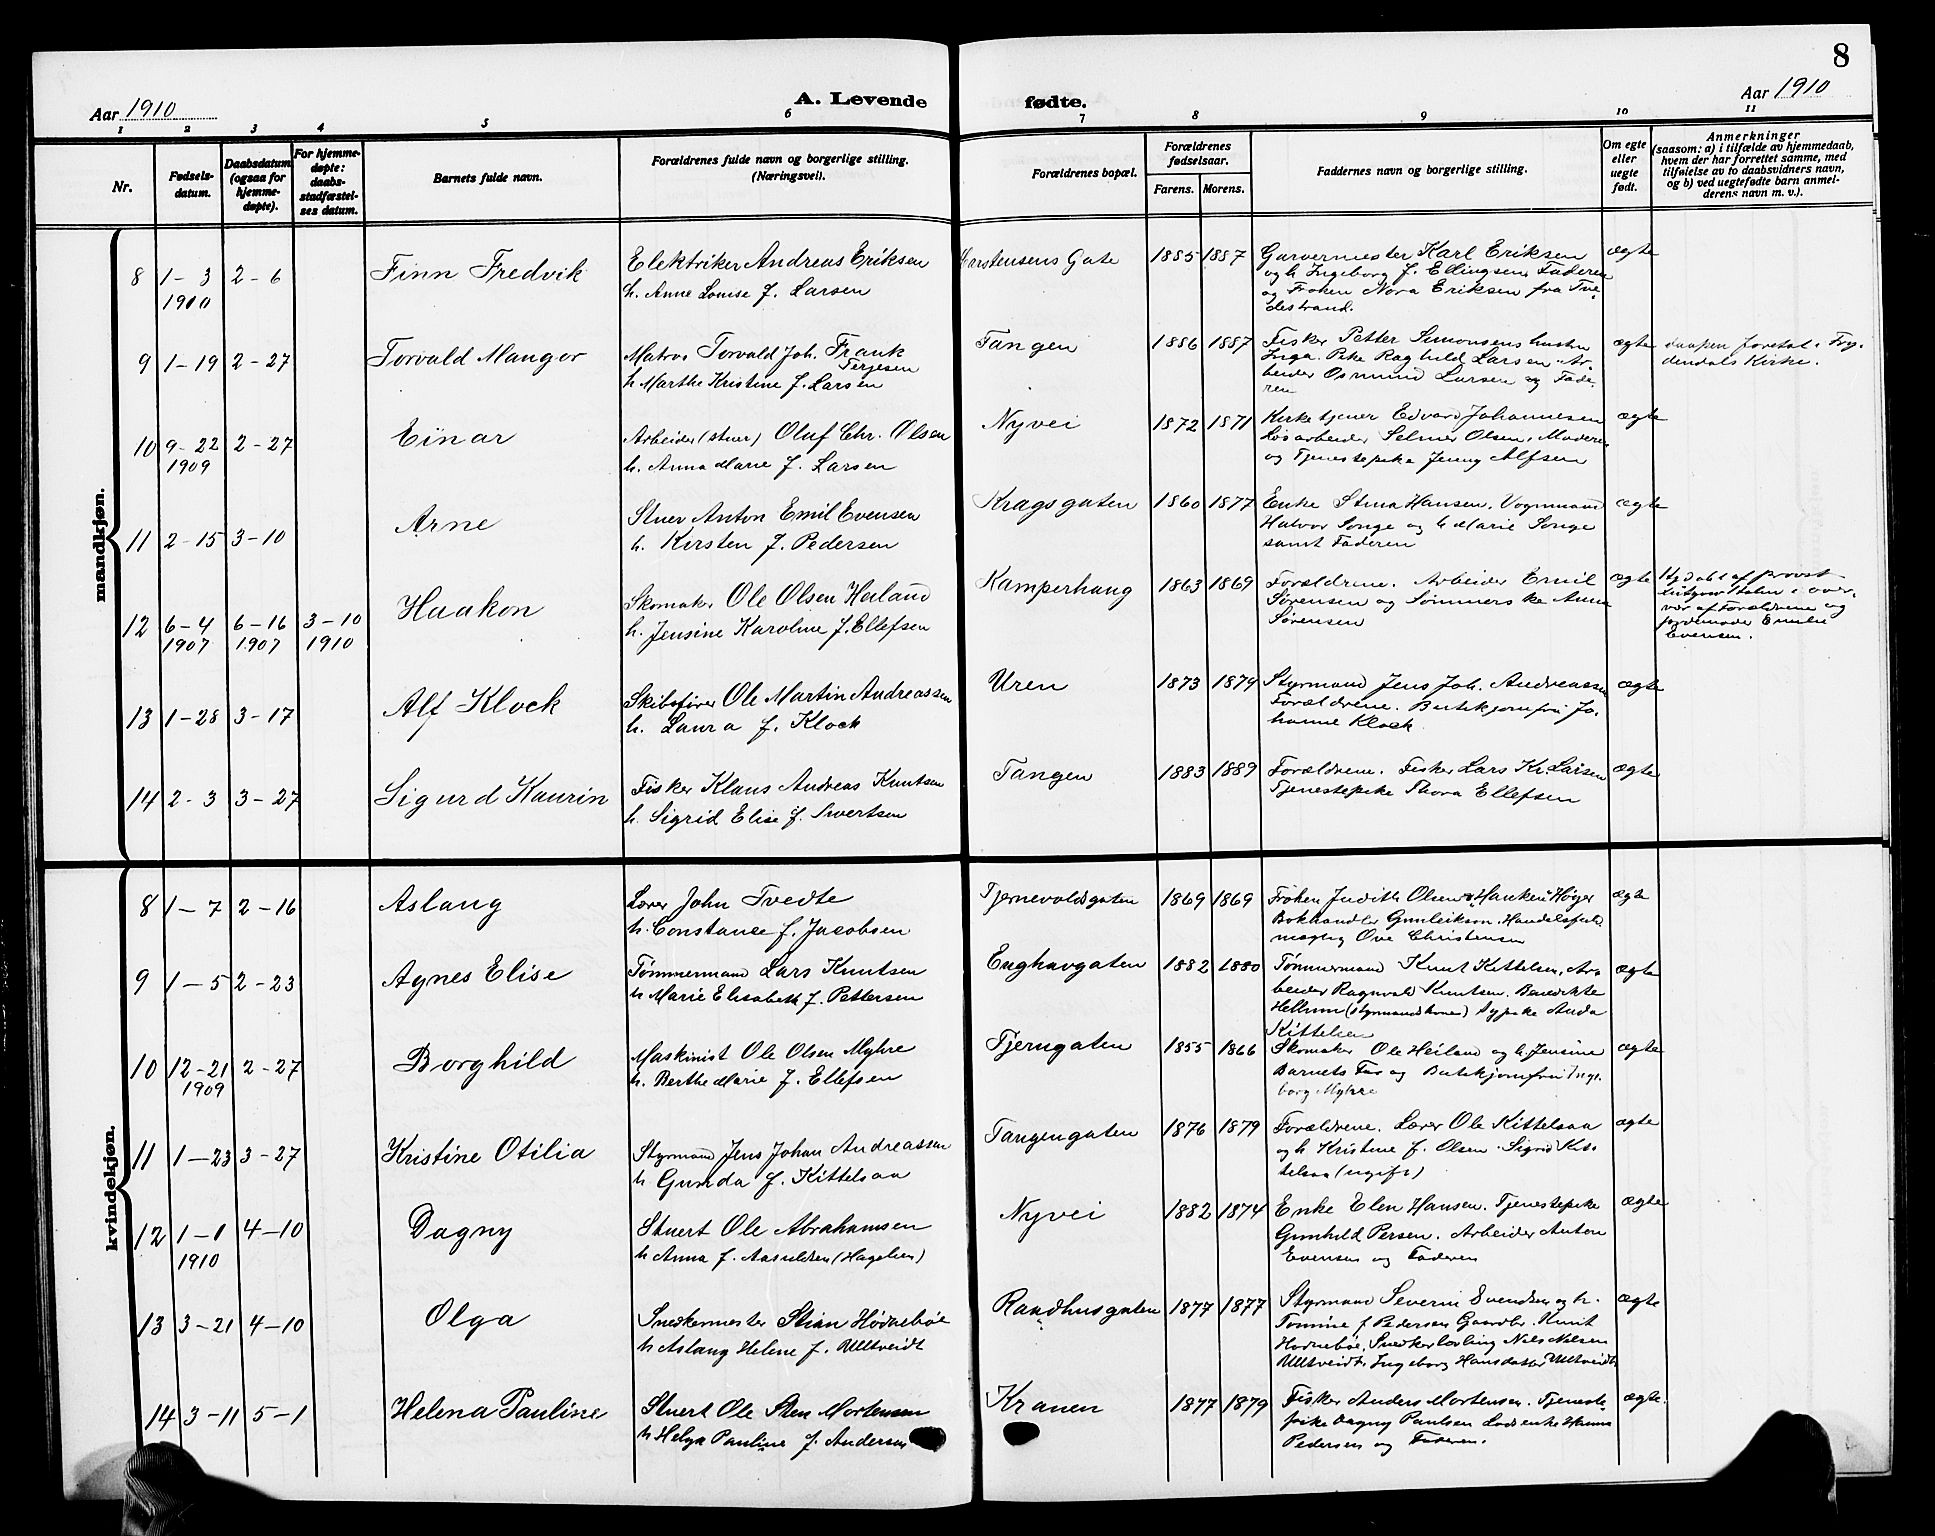 8
Aar 1910 A. Levende fødte. Aar 1910
1 2 3 4 5 6 7 8 9 10 11
Nr.
Fødsels-
datum.
Daabsdatum
(ogsaa for
hjemme-
døpte).
For hjemme-
døpte:
daabs-
stadfæstel-
ses datum.
Barnets fulde navn.
Forældrenes fulde navn og borgerlige stilling.
(Næringsvei).
Forældrenes bopæl.
Forældrenes
fødselsaar.
Farens. Morens.
Faddernes navn og borgerlige stilling.
Om egte
eller
uegte
født.
Anmerkninger
(saasom: a) i tilfælde av hjemmedaab,
hvem der har forrettet samme, med
tilføielse av to daabsvidners navn,
og b) ved uegtefødte barn anmel-
derens navn m. v.).
mandkjøn.
8 1-3 2-6
1910
Finn Fredvik
Elektriker Andreas Eriksen
h. Anne Louise f. Larsen
Karstensens Gate
1885 1887
Garvermester Karl Eriksen
og h Ingeborg f. Ellingsen Faderen
og Frøken Nora Eriksen fra Tve-
destrand.
ægte
9 1-19 2-27
Torvald Mangor
Matros Torvald Joh. Frank
Terjesen
h Marthe Kristine f. Larsen
Tangen
1886 1887
Fisker Petter Simonsens hustru
Inga. Pike Raghild Larsen. Ar-
beider Osmund Larsen og Fade-
ren
ægte
daapen foretat i Fry-
dendals Kirke.
10 9-22 2-27
1909
Einar
Arbeider (stuer) Oluf Chr. Olsen
h. Anna Marie f. Larsen
Nyvei
1872 1871
Kirketjener Edvard Johannesen
Løsarbeider Selmer Olsen, Moderen
og Tjenestepike Jenny Alfsen
ægte
11 2-15 3-10
Arne
Stuer Anton Emil Evensen
h. Kirsten f. Pedersen
Kragsgaten
1860 1877
Enke Stina Hansen. Vognmand
Halvor Songe og h Marie Songe
samt Faderen
ægte
12 6-4 6-16 3-10
1907 1907 1910
Haakon
Skomaker Ole Olsen Heiland
h. Jensine Karoline f. Ellefsen
Kamperhaug
1863 1869
Forældrene. Arbeider Emil
Sørensen og Sømmerske Anna
Sørensen
ægte
Hjdøbt af provst
i over-
vær af Forældrene og
jordemoder Emilie
Evensen.
13 1-28 3-17
Alf Klock
Skibsfører Ole Martin Andreassen
h. Laura f. Klock
Uren
1873 1879
Styrmand Jens Joh. Andreassen
Forældrene. Butikjomfru Jo-
hanne Klock
ægte
14 2-3 3-27
Sigurd Kaurin
Fisker Klaus Andreas Knutsen
h. Sigrid Elise f. Sivertsen
Tangen
1883 1889
Forældrene. Fisker Lars Kr. Larsen
Tjenestepike Thora Ellefsen
ægte
kvindekjøn.
8 1-7 2-16
Aslaug
Lærer John Tvedte
h. Constance f. Jacobsen
Tjernevoldsgaten
1869 1869
Frøken Judith Olsen og Hauken Høyer
Bokhandler Gunleikson. Handelsfuld-
mægtig Ove Christensen
ægte
9 1-5 2-23
Agnes Elise
Tømmermand Lars Knutsen
h Marie Elisabeth f. Pettersen
Enghavgaten
1882 1880
Tømmermand Knut Kittelsen, Ar-
beider Ragnvald Knutsen. Benedikte
Hellum (styrmandskone) Sypike Anda
Kittelsen
ægte
10 12-21 2-27
1909
Borghild
Maskinist Ole Olsen Myhre
h. Berthe Marie f. Ellefsen
Tjerngaten
1855 1866
Skomaker Ole Heiland og h. Jensine
Barnets Far og Butikjomfru Inge-
borg Myhre
ægte
11 1-23 3-27
Kristine Otilia
Styrmand Jens Johan Andreassen
h Gunda f. Kittelsaa
Tangengaten
1876 1879
Forældrene. Lærer Ole Kittelsaa
og h Kristine f. Olsen. Sigrid Kit-
telsaa (ugift)
ægte
12 1-1 4-10
1910
Dagny
Stuert Ole Abrahamsen
h Anna f. Aasuldsen (Hagelien)
Nyvei
1882 1874
Enke Elen Hansen. Tjenestepike
Gunhild Persen. Arbeider Anton
Evensen og Faderen
ægte
13 3-21 4-10
Olga
Snedkermester Stian Hødnebøe
h Aslaug Helene f. Ultveidt
Raadhusgaten
1877 1877
Styrmand Severin Svendsen og h.
Tomine f. Pedersen Gaardbr. Knut
Hødnebøe, Snedkerlærling Nils Nilsen
Ultveidt, Ingeborg Hansdatter Ultveidt
ægte
14 3-11 5-1
Helena Pauline
Stuert Ole Sten Mortensen
h Helga Pauline f. Andersen
Kranen
1877 1879
Fisker Anders Mortensen. Tjeneste-
pike Dagny Paulsen Losenke Hanna
Pedersen og Faderen.
ægte.